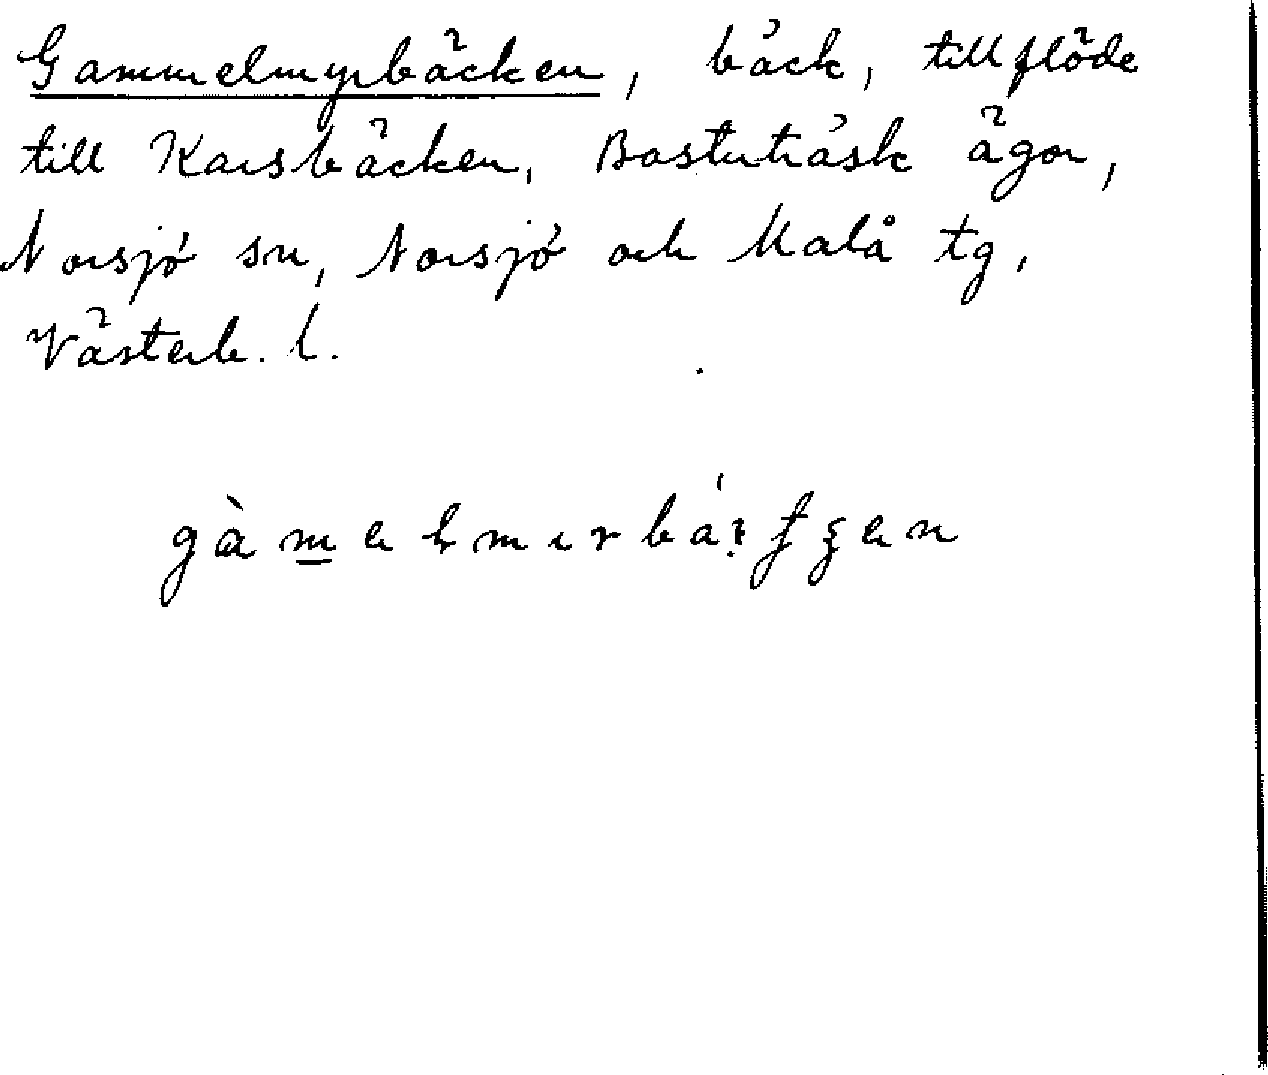 Gammelmyrbäcken, bäck, tillflöde
till Karsbäcken, Bastuträsk ägor,
Norsjö sn, Norsjö och Malå tg,
Västerb. l.